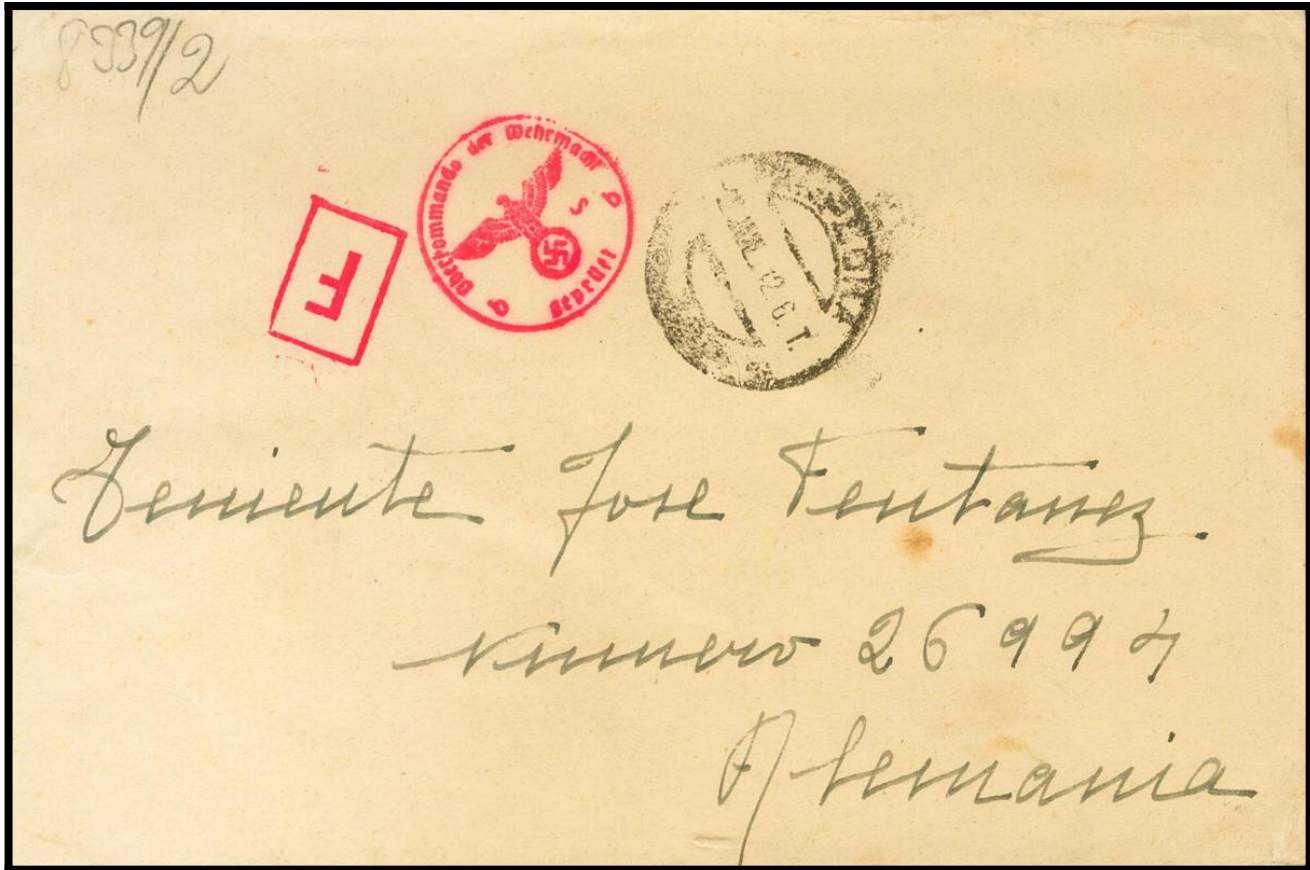 8339/2
Oberkommando der Wehrmacht
Geprüft
F
42 6. T.
Teniente Jose Fentanez.
Numero 26994
Alemania